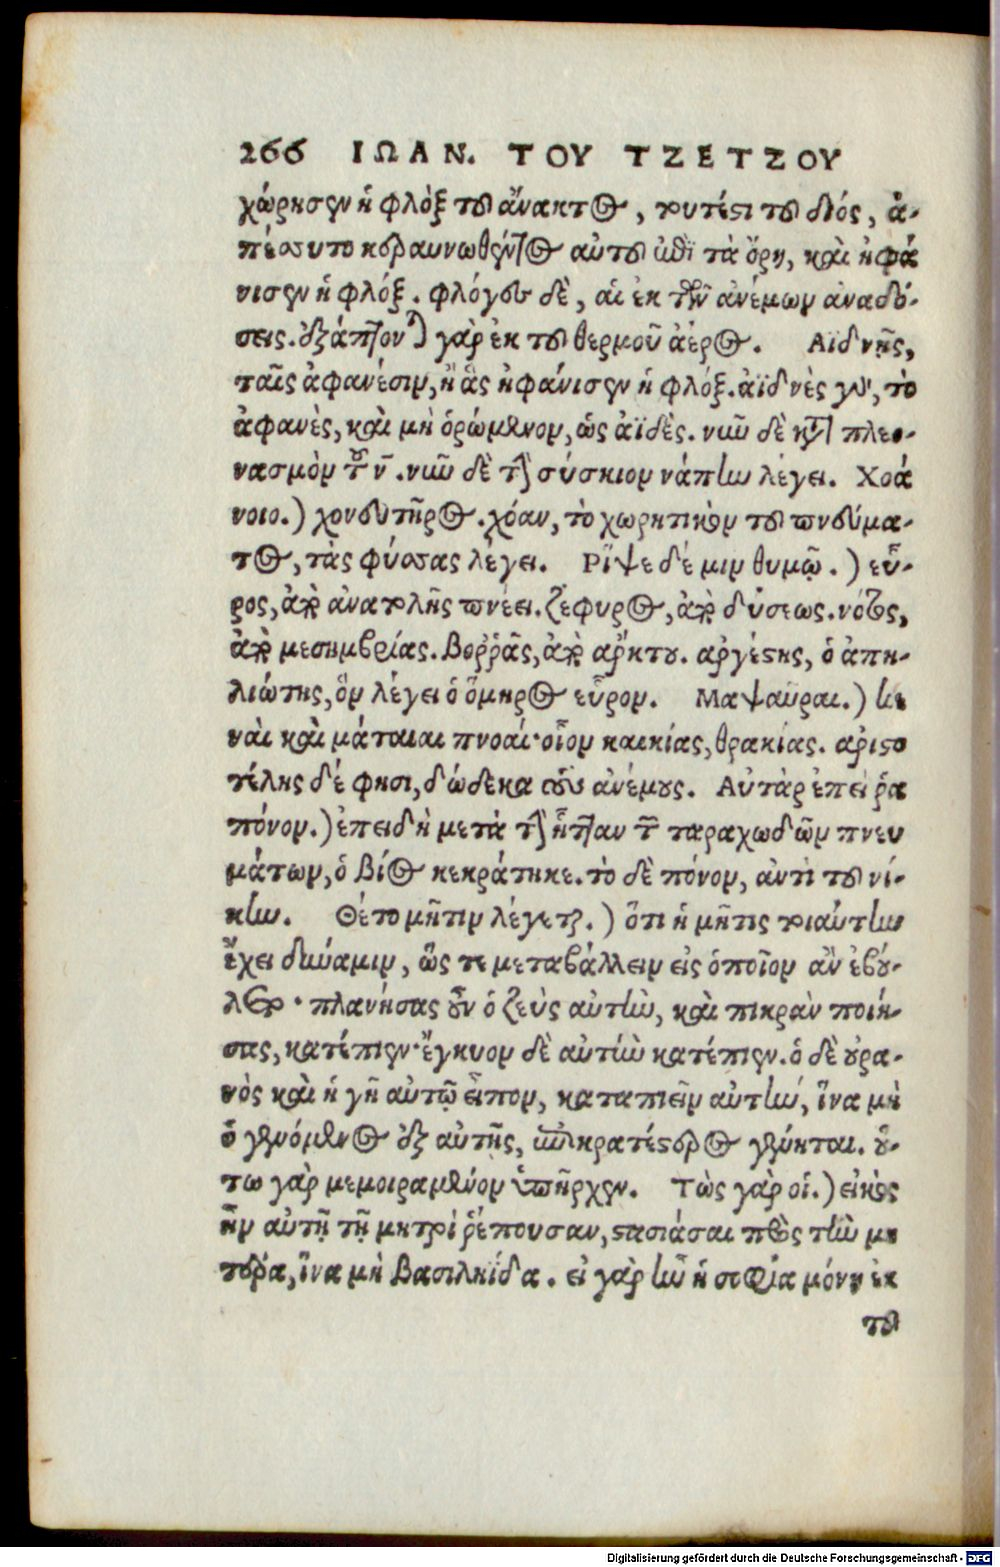 266 ΙΩΑΝ. ΤΟΥ ΤΖΕΤΖΟΥ
χώρησεν ἡ φλὸξ τοῦ ἄνακτος, τουτέστι τοῦ διός, ἀ-
πέσσυτο κεραυνωθέντος αὐτοῦ ἐπὶ τὰ ὄρη, καὶ ἠφά
νισεν ἡ φλόξ. φλόγες δὲ, αἱ ἐκ τῶν ἀνέμων ἀναδό-
σεις. ἐξάπτονται γὰρ ἐκ τοῦ θερμοῦ ἀέρος. Αϊδνῇς,
ταῖς ἀφανέσιν, ἢ ἃς ἠφάνισεν ἡ φλόξ. ἀϊδνὲς γὰρ, τὸ
ἀφανὲς, καὶ μὴ ὁρώμενον, ὡς ἀϊδὲς. νῦν δὲ κατὰ πλεο-
νασμὸν τοῦ ν̄. νῦν δὲ τὴν σύσκιον νάπην λέγει. Χοά
νοιο.) χονευτῆρος. χόαν, τὸ χωρητικὸν τοῦ πνεύμα-
τος, τὰς φύσσας λέγει. Ρῖψε δέ μιν θυμῷ.) εὖ-
ρος, ἀπὸ ἀνατολῆς πνέει. ζεφυρος, ἀπὸ δύσεως. νότος,
ἀπὸ μεσημβρίας. Βοῤῥᾶς, ἀπὸ ἄρκτου. αργέστης, ὁ ἀπη-
λιώτης, ὃν λέγει ὁ ὅμηρος εὖρον. Μαψαῦραι.) κε
ναὶ καὶ μάταιαι πνοαί· οἷον καικίας, θρακίας. αριστο
τέλης δέ φησι, δώδεκα τοὺς ἀνέμους. Αὐτὰρ ἐπεί ῥα
πόνον.) ἐπειδὴ μετὰ τὴν ἧτταν τῶν ταραχωδῶν πνευ
μάτων, ὁ βίος κεκράτηκε. τὸ δὲ πόνον, ἀντὶ τοῦ νί-
κην. Θέτο μῆτιν λέγεται.) ὅτι ἡ μῆτις τοιαύτην
ἔχει δύναμιν, ὥς τε μεταβάλλειν εἰς ὁποῖον ἂν ἐβού-
λετο· πλανήσας οὖν ὁ ζεὺς αὐτὴν, καὶ πικρὰν ποιή-
σας, κατέπιεν· ἔγκυον δὲ αὐτὴν κατέπιεν. ὁ δὲ οὐρα-
νὸς καὶ ἡ γῆ αὐτῷ εἶπον, καταπιεῖν αὐτὴν, ἵνα μὴ
ὁ γενόμενος ἐξ αὐτῆς, ἐπικρατέστερος γένηται. οὕ-
τω γὰρ μεμοιραμένον ὑπῆρχεν. Τὼς γὰρ οἱ.) εἰκὸς
ἦν αὐτῇ τῇ μητρὶ ῥέπουσαν, στασιάσαι πρὸς τὴν μη
τέρα, ἵνα μὴ βασιληΐδα. εἰ γὰρ ἦν ἡ σοφία μόνη ἐκ
τοῦ
Digitalisierung gefördert durch die Deutsche Forschungsgemeinschaft - DFG